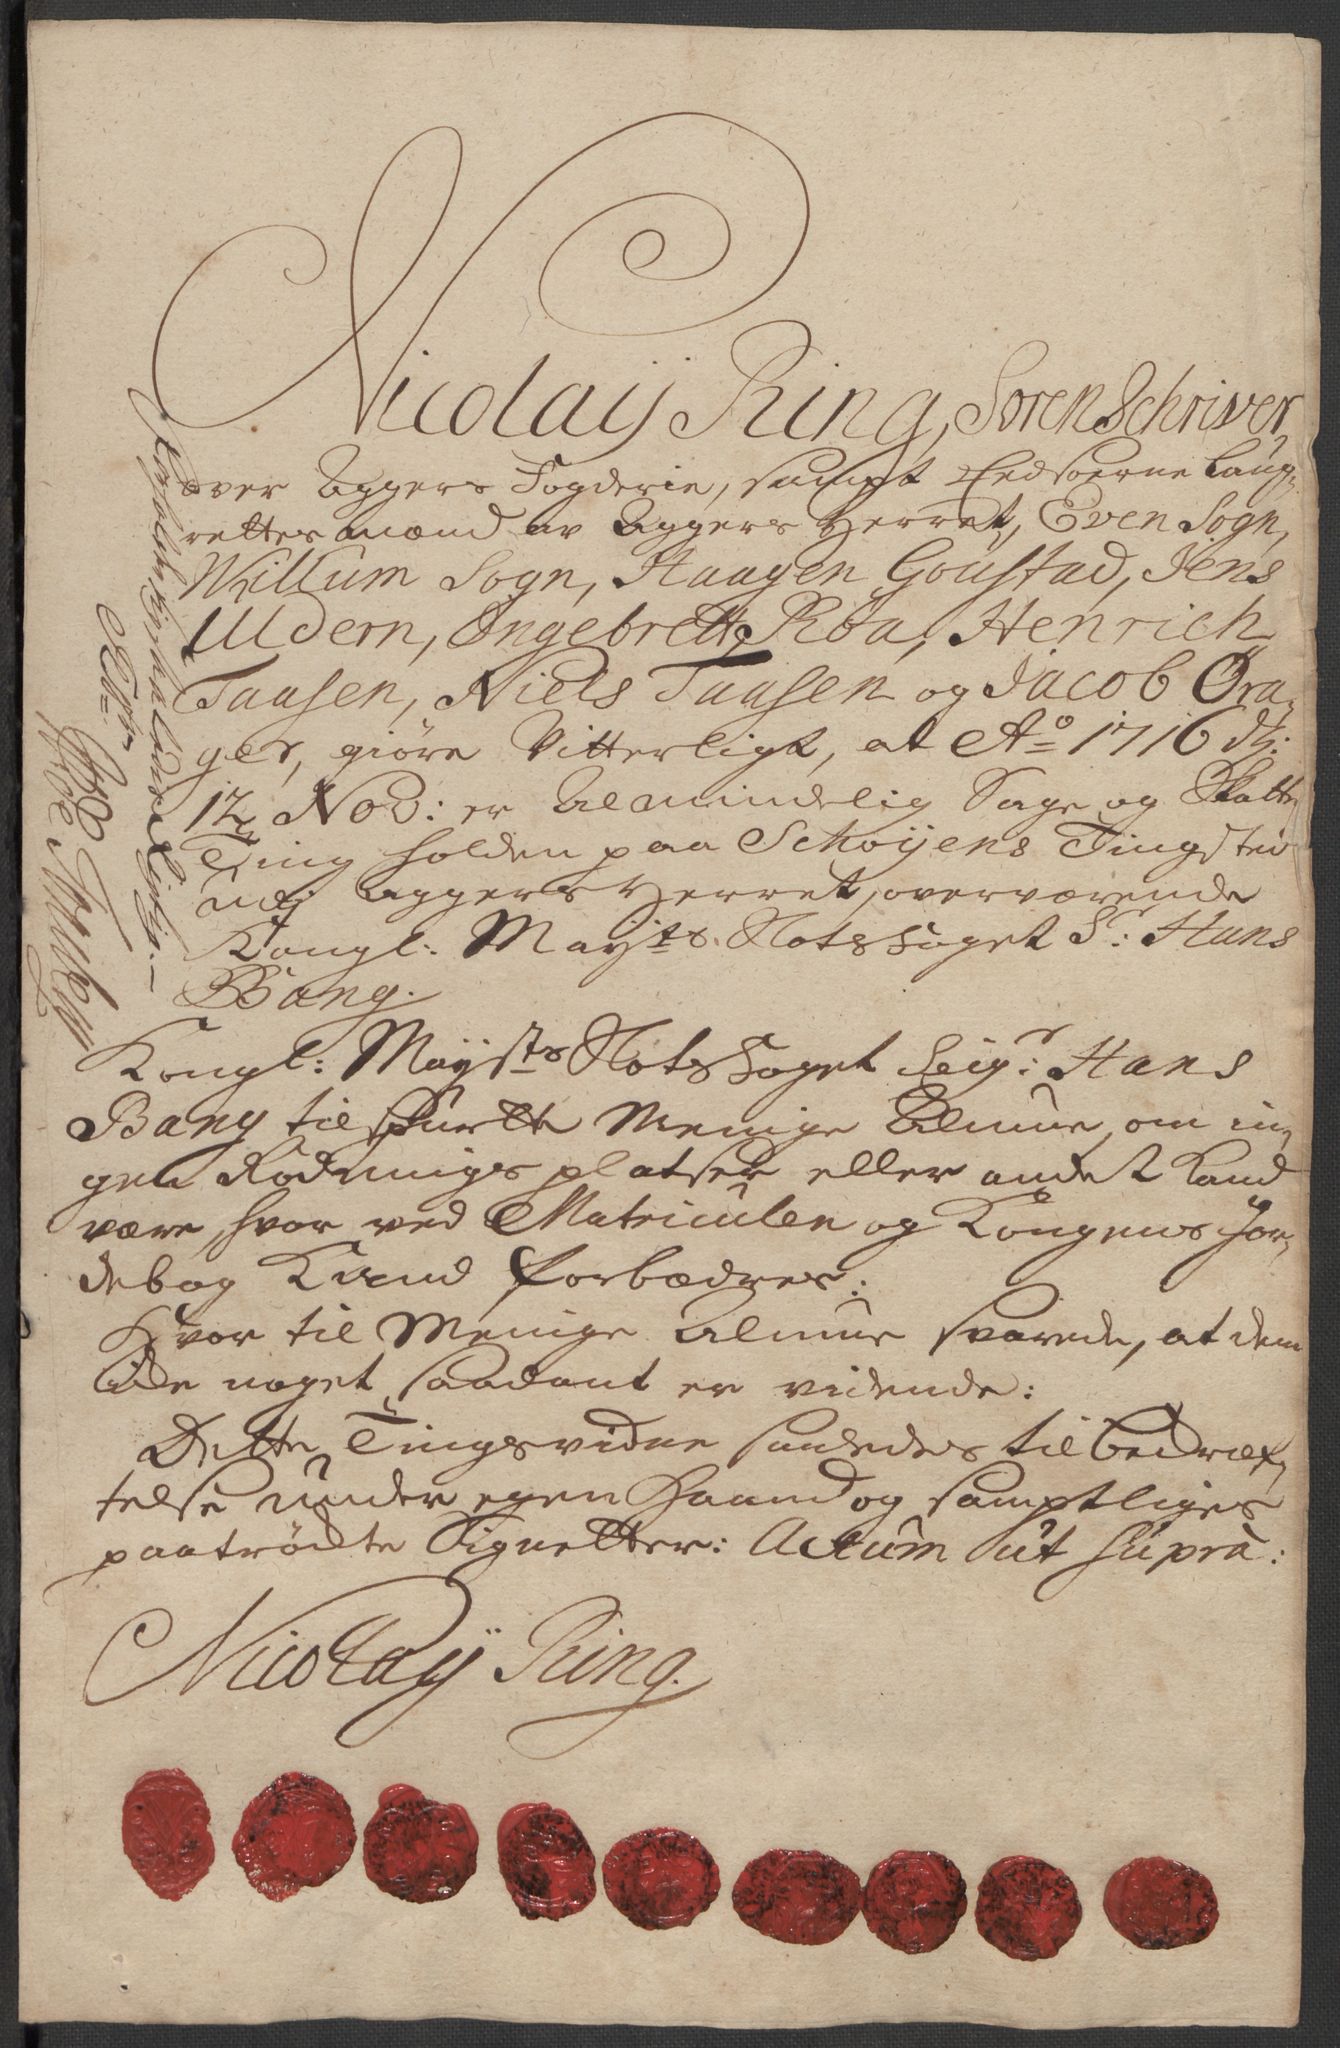 Nicolaij Ring, SorenSchriver
over Aggers Fogderie, sampt Eedsoerne Laug-
rettesmænd av Aggers Herret, Even Sogn,
Willum Sogn, Haagen Goustad, Jens
Uldern, Engebrett Röa, Henrich
Taasen, Niels Taasen og Jacob Ora-
ger, giöre Vitterligt, at Ao 1716 d:
12 Nov: er Almindelig Sage og Skatte
Ting holden paa Schoijens Tingsted
udj Aggers Herret, overværende
Kongl: Mayts. Foget Sr: Hans
Bang.
Kongl: Mayjts Foget Seigr: Hans
Bang tilspurte Menige Almue, om in-
gen Rödnings platser eller andet Land
være, hvor ved Matriculen og Kongens Jor-
debog Kand forbædres:
Hvor til Menige Almue svarede, at dem
icke noget saadant er vidende:
Dette Tingsvidne saaledes til bedræf-
telse under egen Haand og samptliges
paatrögte Signetter: Actum ut supra:
Nicolaij Ring.